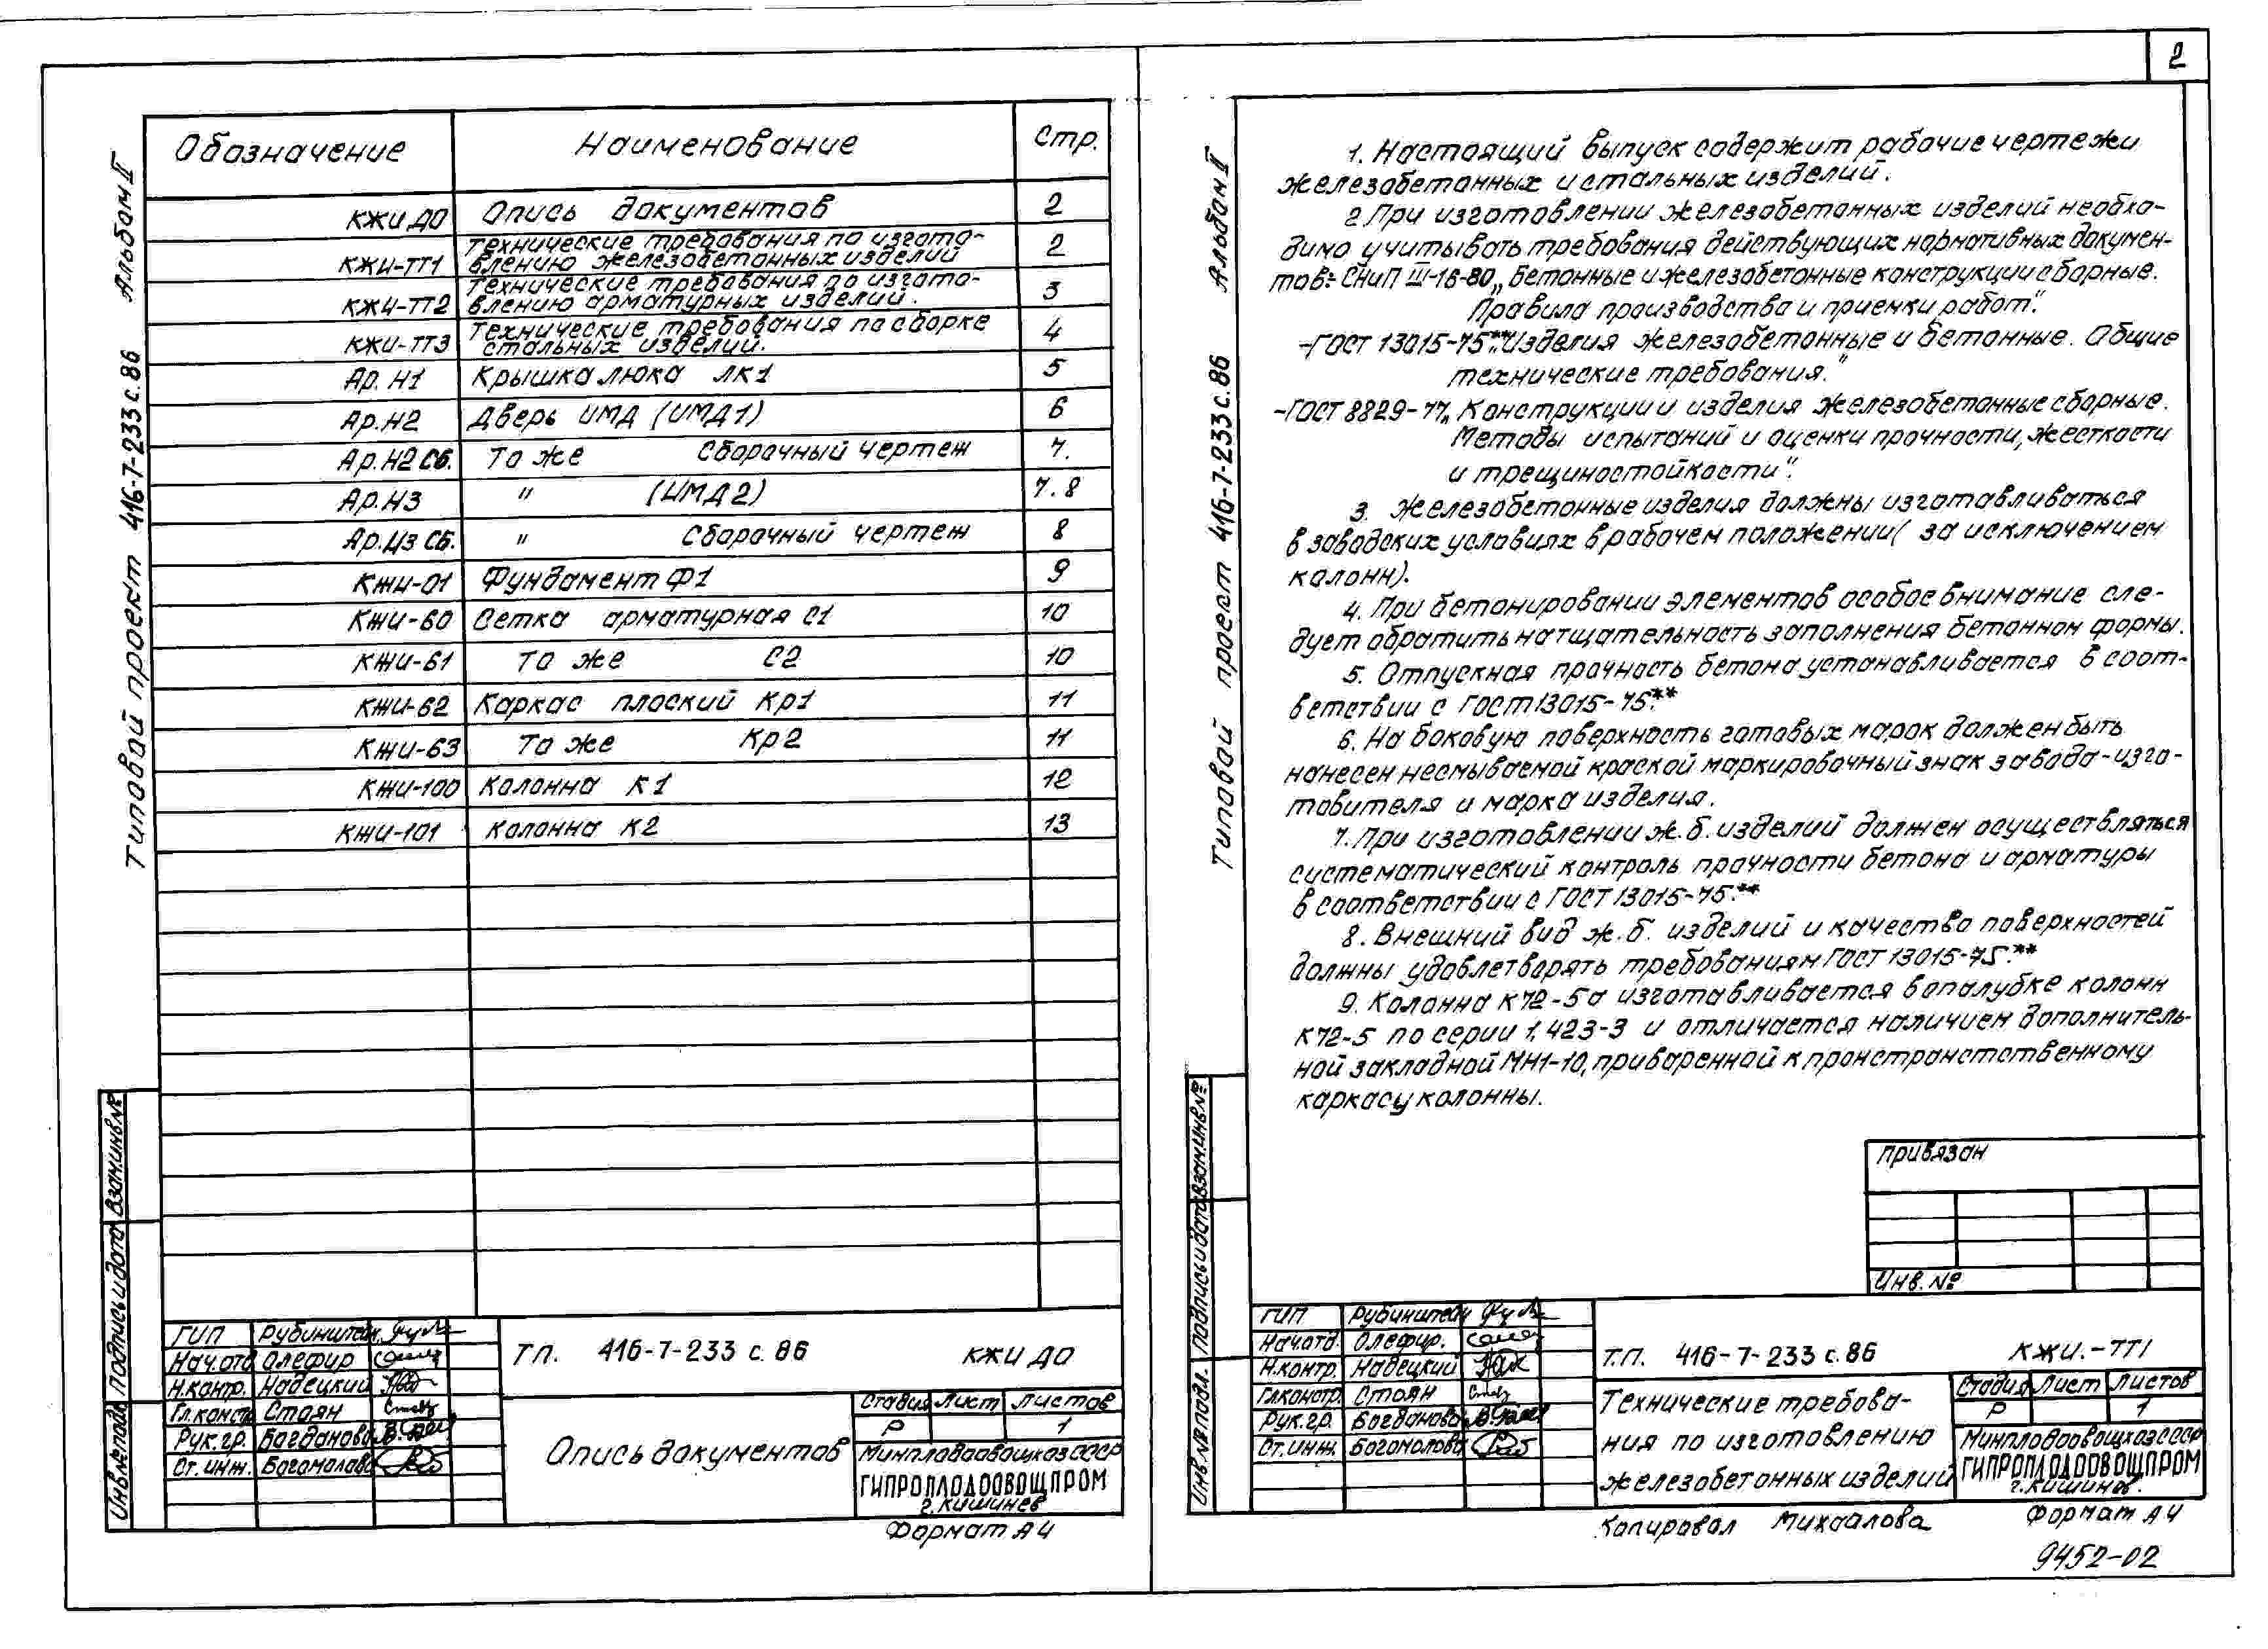 2
Типовой проект 416-7-233 с.86 Альбом II
Обозначение Наименование Стр.
КЖИ ДО Опись документов 2
КЖИ-ТТ1 Технические требования по изгото-
влению железобетонных изделий 2
КЖИ-ТТ2 Технические требования по изгото-
влению арматурных изделий. 3
КЖИ-ТТ3 Технические требования по сборке
стальных изделий. 4
Ар.И1 Крышка люка ЛК1 5
Ар.И2 Дверь ИМД (ИМД1) 6
Ар.И2 СБ. То же Сборочный чертеж 7.
Ар.И3 " (ИМД2) 7.8
Ар.И3 СБ. " Сборочный чертеж 8
КЖИ-01 Фундамент Ф1 9
КЖИ-60 Сетка арматурная С1 10
КЖИ-61 То же С2 10
КЖИ-62 Каркас плоский Кр1 11
КЖИ-63 То же Кр2 11
КЖИ-100 Колонна К1 12
КЖИ-101 Колонна К2 13
Взам.инв.№
Подпись и дата
Инв.№ подл.
ГИП Рубинштейн
Нач.отд Олефир
Н.контр. Надецкий
Гл.констр. Стоян
Рук.гр. Богданова
Ст.инж. Богомолова
Т.П. 416-7-233 с.86 КЖИ ДО
Опись документов
Стадия Лист Листов
Р 1
Минплодоовощхоз СССР
ГИПРОПЛОДООВОЩПРОМ
г.Кишинев
Формат А4
Типовой проект 416-7-233 с.86 Альбом II
1. Настоящий выпуск содержит рабочие чертежи
железобетонных и стальных изделий.
2. При изготовлении железобетонных изделий необхо-
димо учитывать требования действующих нормативных докумен-
тов:- СНиП III-16-80 „Бетонные и железобетонные конструкции сборные.
Правила производства и приемки работ".
-ГОСТ 13015-75**„Изделия железобетонные и бетонные. Общие
технические требования."
-ГОСТ 8829-77„ Конструкции и изделия железобетонные сборные.
Методы испытаний и оценки прочности, жесткости
и трещиностойкости".
3. Железобетонные изделия должны изготавливаться
в заводских условиях в рабочем положении( за исключением
колонн).
4. При бетонировании элементов особое внимание сле-
дует обратить на тщательность заполнения бетоном формы.
5. Отпускная прочность бетона устанавливается в соот-
ветствии с ГОСТ 13015-75.**
6. На боковую поверхность готовых марок должен быть
нанесен несмываемой краской маркировочный знак завода-изго-
товителя и марка изделия.
7. При изготовлении ж.б. изделий должен осуществляться
систематический контроль прочности бетона и арматуры
в соответствии с ГОСТ 13015-75.**
8. Внешний вид ж.б. изделий и качество поверхностей
должны удовлетворять требованиям ГОСТ 13015-75.**
9. Колонна К72-5а изготавливается в опалубке колонн
К72-5 по серии 1.423-3 и отличается наличием дополнитель-
ной закладной МН1-10, приваренной к пронстранстственному
каркасу колонны.
Привязан
Инв.№
Взам.инв.№
Подпись и дата
Инв.№ подл.
ГИП Рубинштейн
Нач.отд. Олефир.
Н.контр. Надецкий
Гл.констр. Стоян
Рук.гр. Богданова
Ст.инж. Богомолова
Т.П. 416-7-233 с.86 КЖИ.-ТТ1
Технические требова-
ния по изготовлению
железобетонных изделий
Стадия Лист Листов
Р 1
Минплодоовощхоз СССР
ГИПРОПЛОДООВОЩПРОМ
г.Кишинев.
Копировал Михаалова Формат А4
9452-02